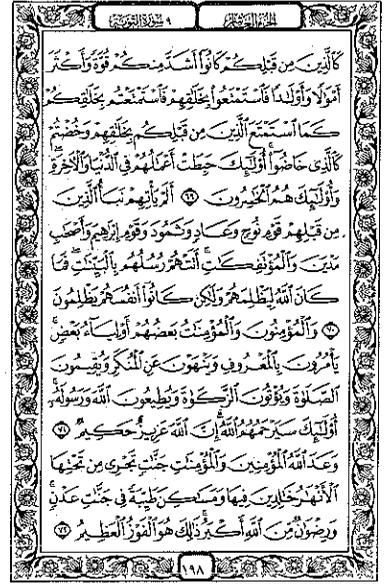 الجزء العاشر
سورة التوبة ٩
كَٱلَّذِينَ مِن قَبْلِكُمْ كَانُوٓا۟ أَشَدَّ مِنكُمْ قُوَّةً وَأَكْثَرَ
أَمْوَٰلًا وَأَوْلَـٰدًا فَٱسْتَمْتَعُوا۟ بِخَلَـٰقِهِمْ فَٱسْتَمْتَعْتُم بِخَلَـٰقِكُمْ
كَمَا ٱسْتَمْتَعَ ٱلَّذِينَ مِن قَبْلِكُم بِخَلَـٰقِهِمْ وَخُضْتُمْ
كَٱلَّذِى خَاضُوٓا۟ أُو۟لَـٰٓئِكَ حَبِطَتْ أَعْمَـٰلُهُمْ فِى ٱلدُّنْيَا وَٱلْـَٔاخِرَةِ
وَأُو۟لَـٰٓئِكَ هُمُ ٱلْخَـٰسِرُونَ ٦٩ أَلَمْ يَأْتِهِمْ نَبَأُ ٱلَّذِينَ
مِن قَبْلِهِمْ قَوْمِ نُوحٍ وَعَادٍ وَثَمُودَ وَقَوْمِ إِبْرَٰهِيمَ وَأَصْحَـٰبِ
مَدْيَنَ وَٱلْمُؤْتَفِكَـٰتِ أَتَتْهُمْ رُسُلُهُم بِٱلْبَيِّنَـٰتِ فَمَا
كَانَ ٱللَّهُ لِيَظْلِمَهُمْ وَلَـٰكِن كَانُوٓا۟ أَنفُسَهُمْ يَظْلِمُونَ
٧٠ وَٱلْمُؤْمِنُونَ وَٱلْمُؤْمِنَـٰتُ بَعْضُهُمْ أَوْلِيَآءُ بَعْضٍ
يَأْمُرُونَ بِٱلْمَعْرُوفِ وَيَنْهَوْنَ عَنِ ٱلْمُنكَرِ وَيُقِيمُونَ
ٱلصَّلَوٰةَ وَيُؤْتُونَ ٱلزَّكَوٰةَ وَيُطِيعُونَ ٱللَّهَ وَرَسُولَهُۥٓ
أُو۟لَـٰٓئِكَ سَيَرْحَمُهُمُ ٱللَّهُ إِنَّ ٱللَّهَ عَزِيزٌ حَكِيمٌ ٧١
وَعَدَ ٱللَّهُ ٱلْمُؤْمِنِينَ وَٱلْمُؤْمِنَـٰتِ جَنَّـٰتٍ تَجْرِى مِن تَحْتِهَا
ٱلْأَنْهَـٰرُ خَـٰلِدِينَ فِيهَا وَمَسَـٰكِنَ طَيِّبَةً فِى جَنَّـٰتِ عَدْنٍ
وَرِضْوَٰنٌ مِّنَ ٱللَّهِ أَكْبَرُ ذَٰلِكَ هُوَ ٱلْفَوْزُ ٱلْعَظِيمُ ٧٢
١٩٨